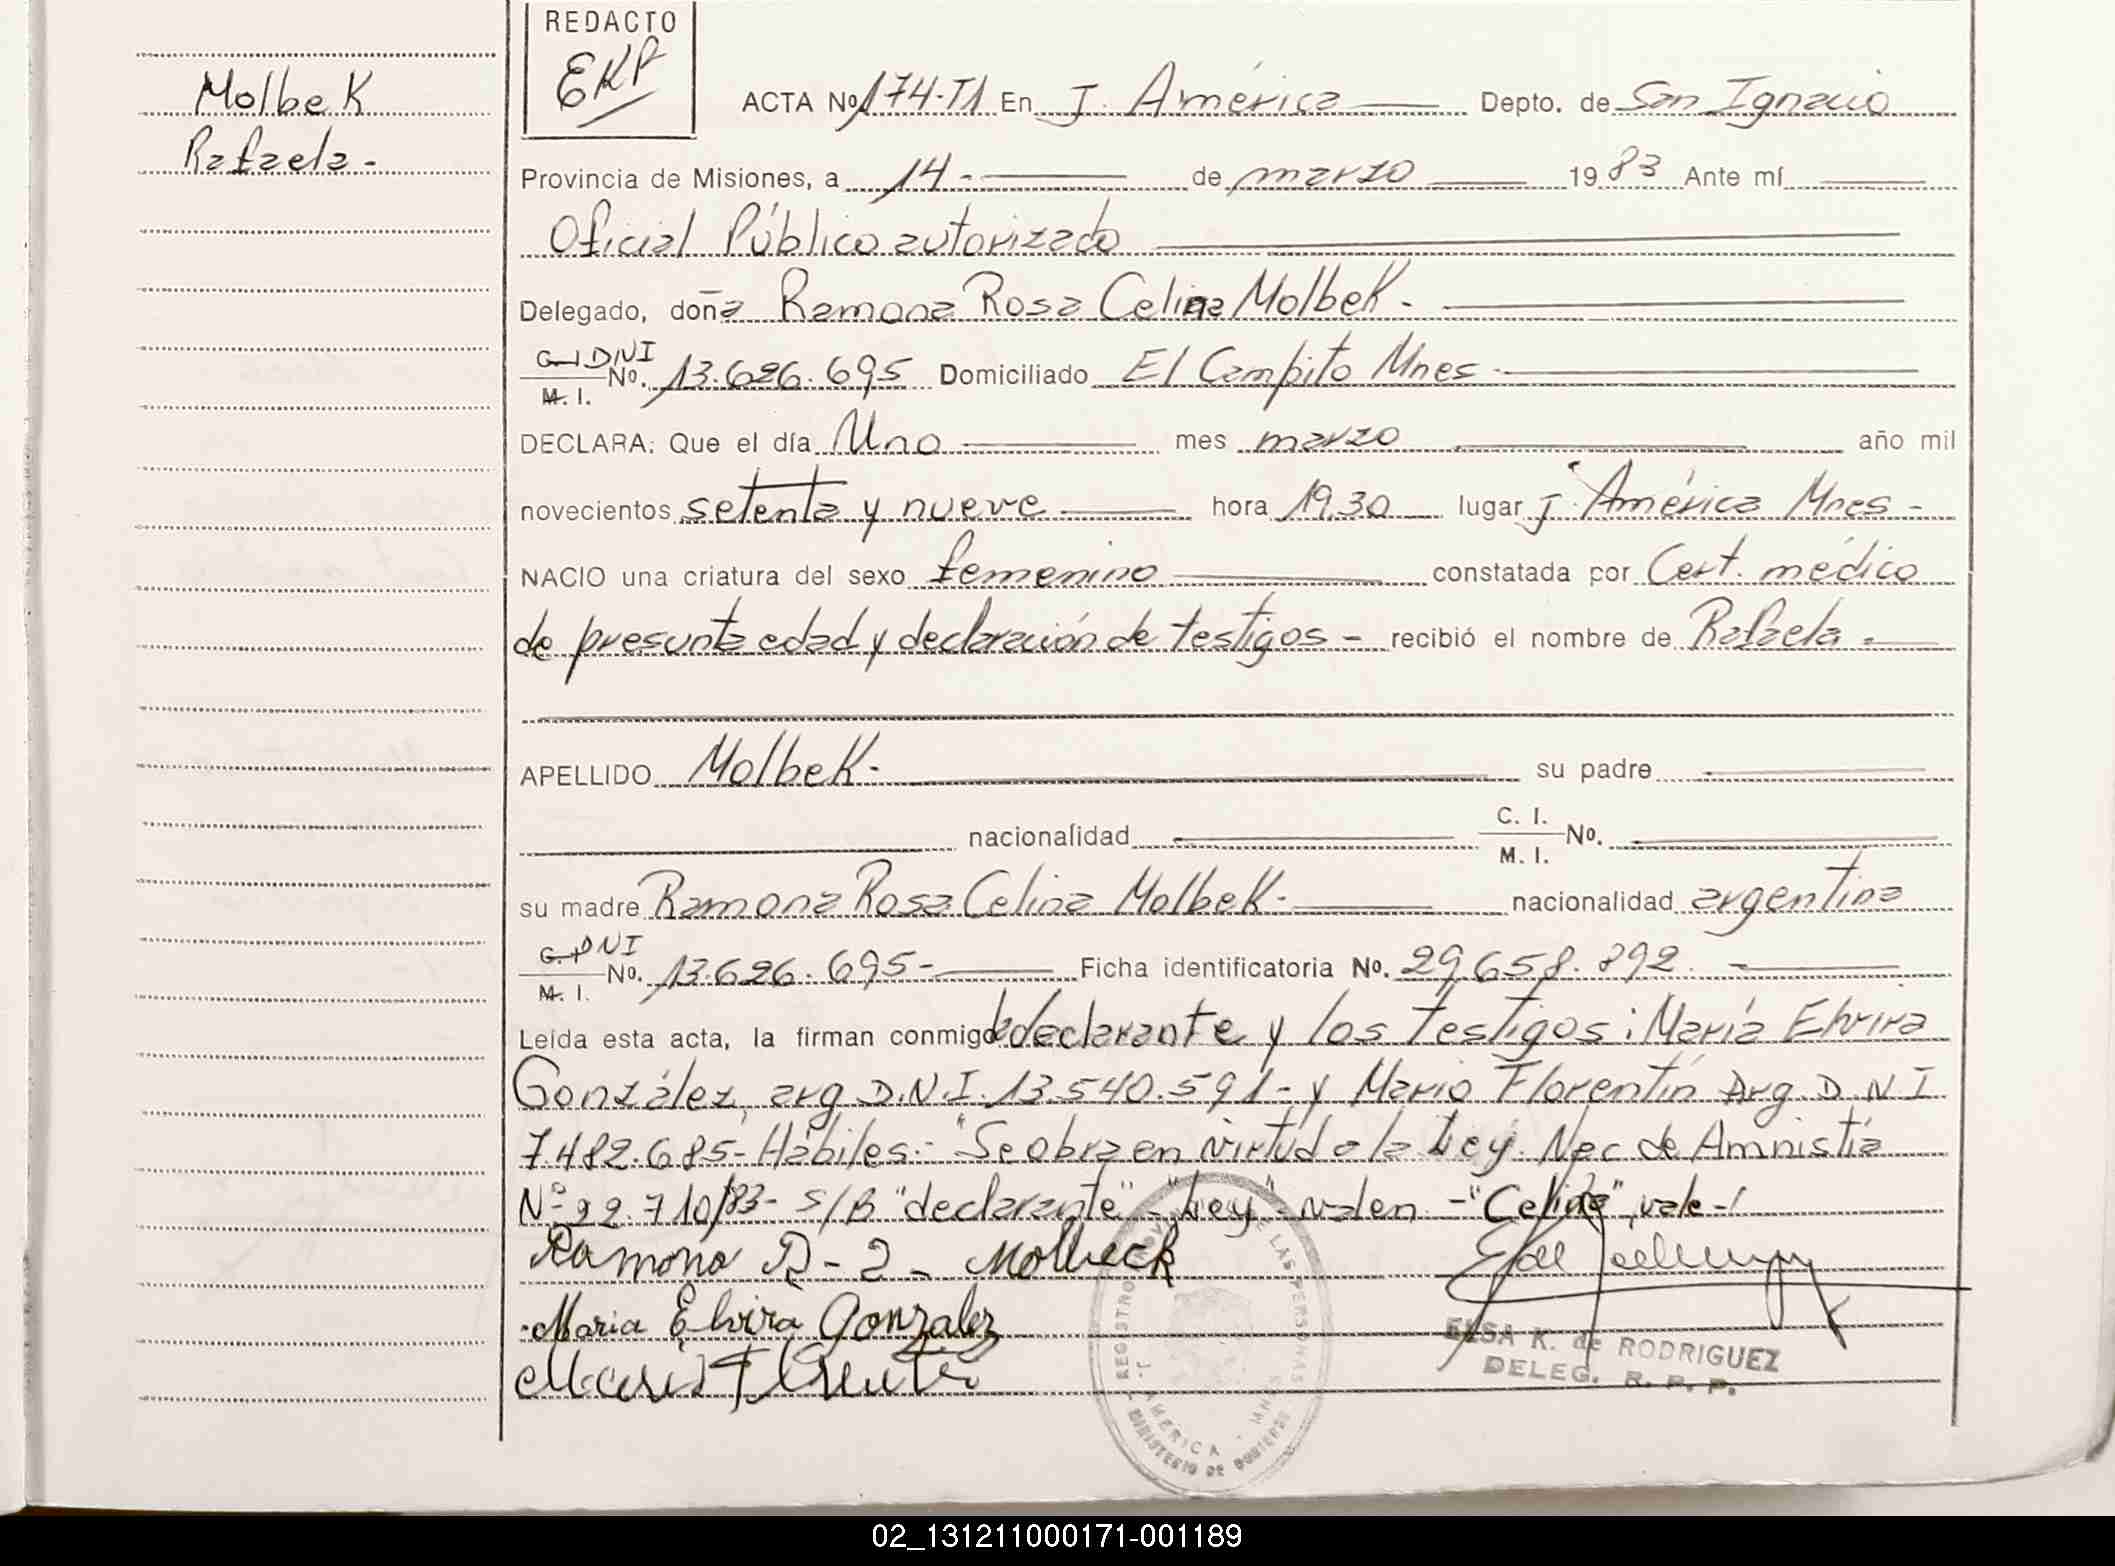 Molbek
Rafaela -
REDACTO
EKR
ACTA Nº 174-T1 En J. América Depto. de San Ignacio
Provincia de Misiones, a 14 - de marzo 1983 Ante mí
Oficial Público autorizado
Delegado, doña Ramona Rosa Celina Molbek.
C. I. DNI
M. I. No. 13.626.695 Domiciliado El Campito Mnes -
DECLARA: Que el día Uno mes marzo año mil
novecientos setenta y nueve hora 19,30 lugar J. América Mnes -
NACIO una criatura del sexo femenino constatada por Cert. médico
de presunta edad y declaración de testigos - recibió el nombre de Rafaela -
APELLIDO Molbek - su padre
nacionalidad C. I. M. I. No.
su madre Ramona Rosa Celina Molbek - nacionalidad argentina
C. I. DNI
M. I. No. 13.626.695 - Ficha identificatoria No. 29.658.892. -
Leída esta acta, la firman conmigo la declarante y los testigos: María Elvira
González, arg D.N.I. 13.540.591 - y Mario Florentín Arg. D.N.I
7.482.685 - Hábiles: - "Se obra en virtúd a la Ley. Nac de Amnistía
Nº 22.710/83 - S/B "declarante" - "Ley" - valen - "Celina", vale -
Ramona R - 2 - Molbeck
Maria Elvira Gonzalez
Mario Florentin
ELSA K. de RODRIGUEZ
DELEG. R. P. P.
REGISTRO PROV. DE LAS PERSONAS
J. AMERICA - MNES
MINISTERIO DE GOBIERNO
02_131211000171-001189